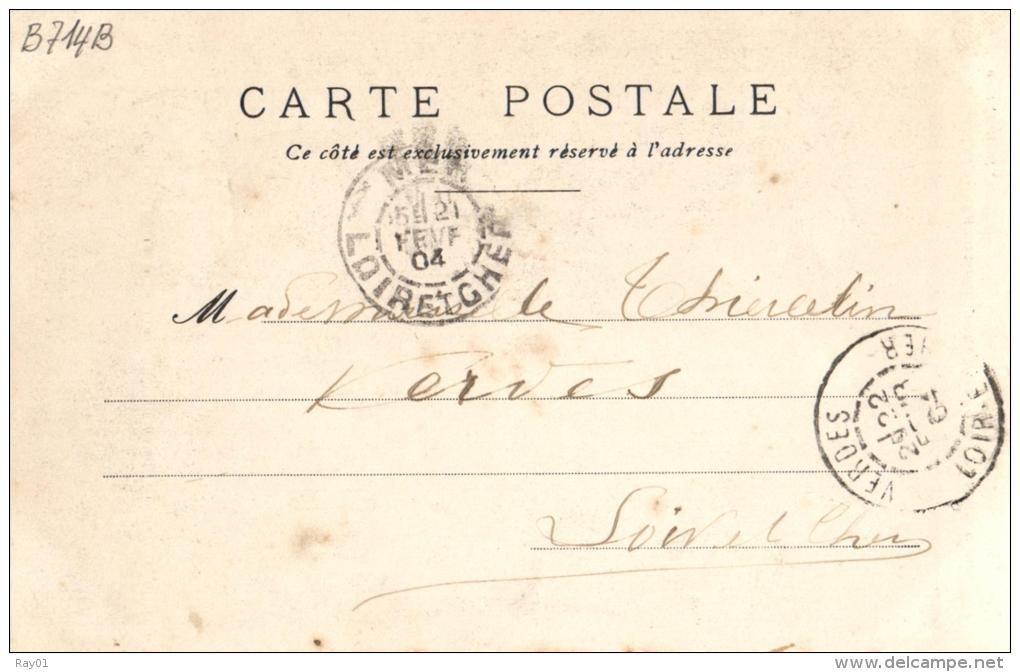 B714B
CARTE POSTALE
Ce côté est exclusivement réservé à l'adresse
MER
21
FEVR
04
LOIR-ET-CHER
Mademoiselle Thiercelin
Verdes
Loir et Cher
VERDES
22
04
LOIR-E
CHER
Ray01
www.delcampe.net